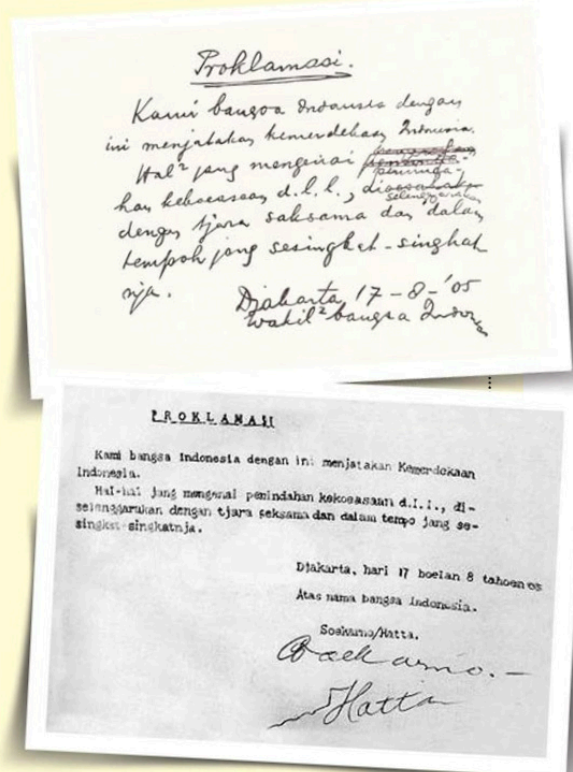 Proklamasi.
Kami bangsa Indonesia dengan
ini menjatakan kemerdekaan Indonesia.
Hal² jang mengenai
peminda-
han kekoeasaan d.l.l.,
diselenggarakan
dengan tjara saksama dan dalam
tempoh jang sesingkat-singkat
nja.
Djakarta, 17-8-'05
Wakil² bangsa Indonesia
PROKLAMASI
Kami bangsa Indonesia dengan ini menjatakan Kemerdekaan
Indonesia.
Hal-hal jang mengenai pemindahan kekoeasaan d.l.l., di-
selenggarakan dengan tjara seksama dan dalam tempo jang se-
singkat-singkatnja.
Djakarta, hari 17 boelan 8 tahoen 05
Atas nama bangsa Indonesia.
Soekarno/Hatta.
Soekarno.-
Hatta